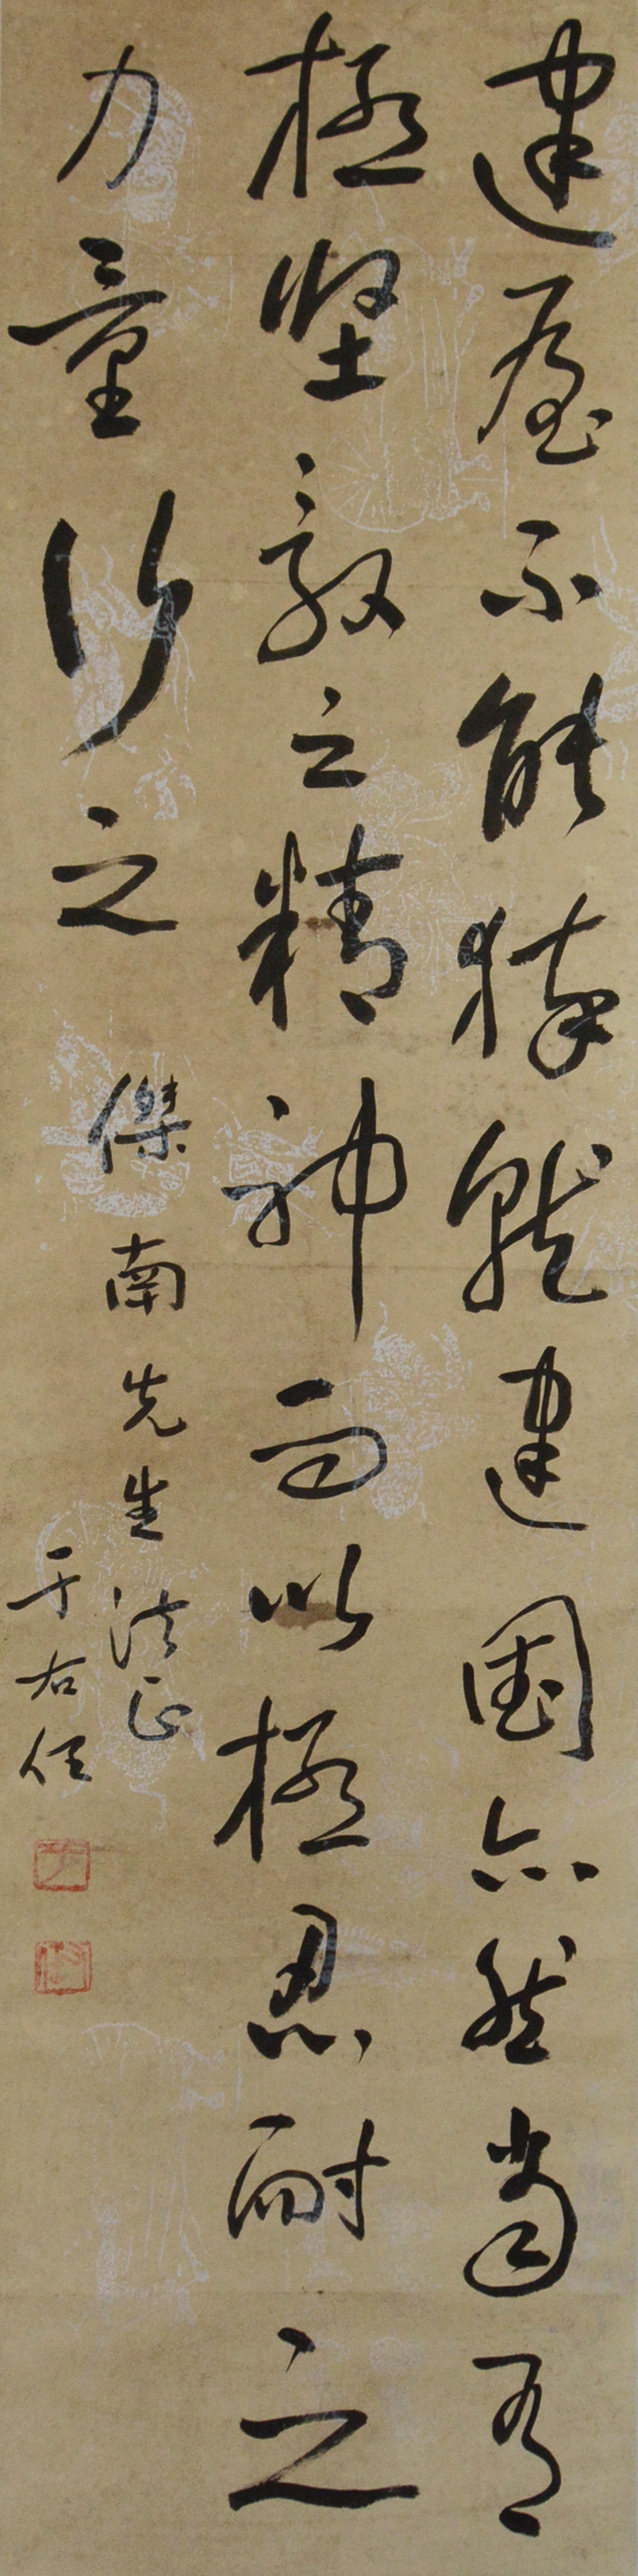 建屋不能猝就建国亦然当有
極堅毅之精神而以極忍耐之
力量行之
傑南先生法正
于右任